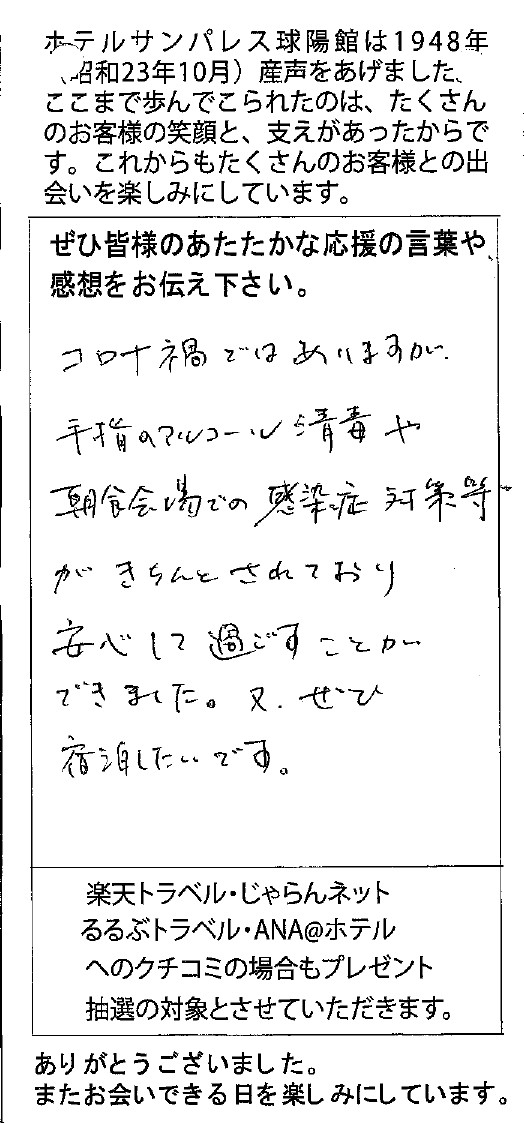 ホテルサンパレス球陽館は1948年
（昭和23年10月）産声をあげました、
ここまで歩んでこられたのは、たくさん
のお客様の笑顔と、支えがあったからで
す。これからもたくさんのお客様との出
会いを楽しみにしています。
ぜひ皆様のあたたかな応援の言葉や、
感想をお伝え下さい。
コロナ禍ではありますが、
手指のアルコール消毒や
朝食会場での感染症対策等
がきちんとされており
安心して過ごすことが
できました。又、ぜひ
宿泊したいです。
楽天トラベル・じゃらんネット
るるぶトラベル・ANA@ホテル
へのクチコミの場合もプレゼント
抽選の対象とさせていただきます。
ありがとうございました。
またお会いできる日を楽しみにしています。